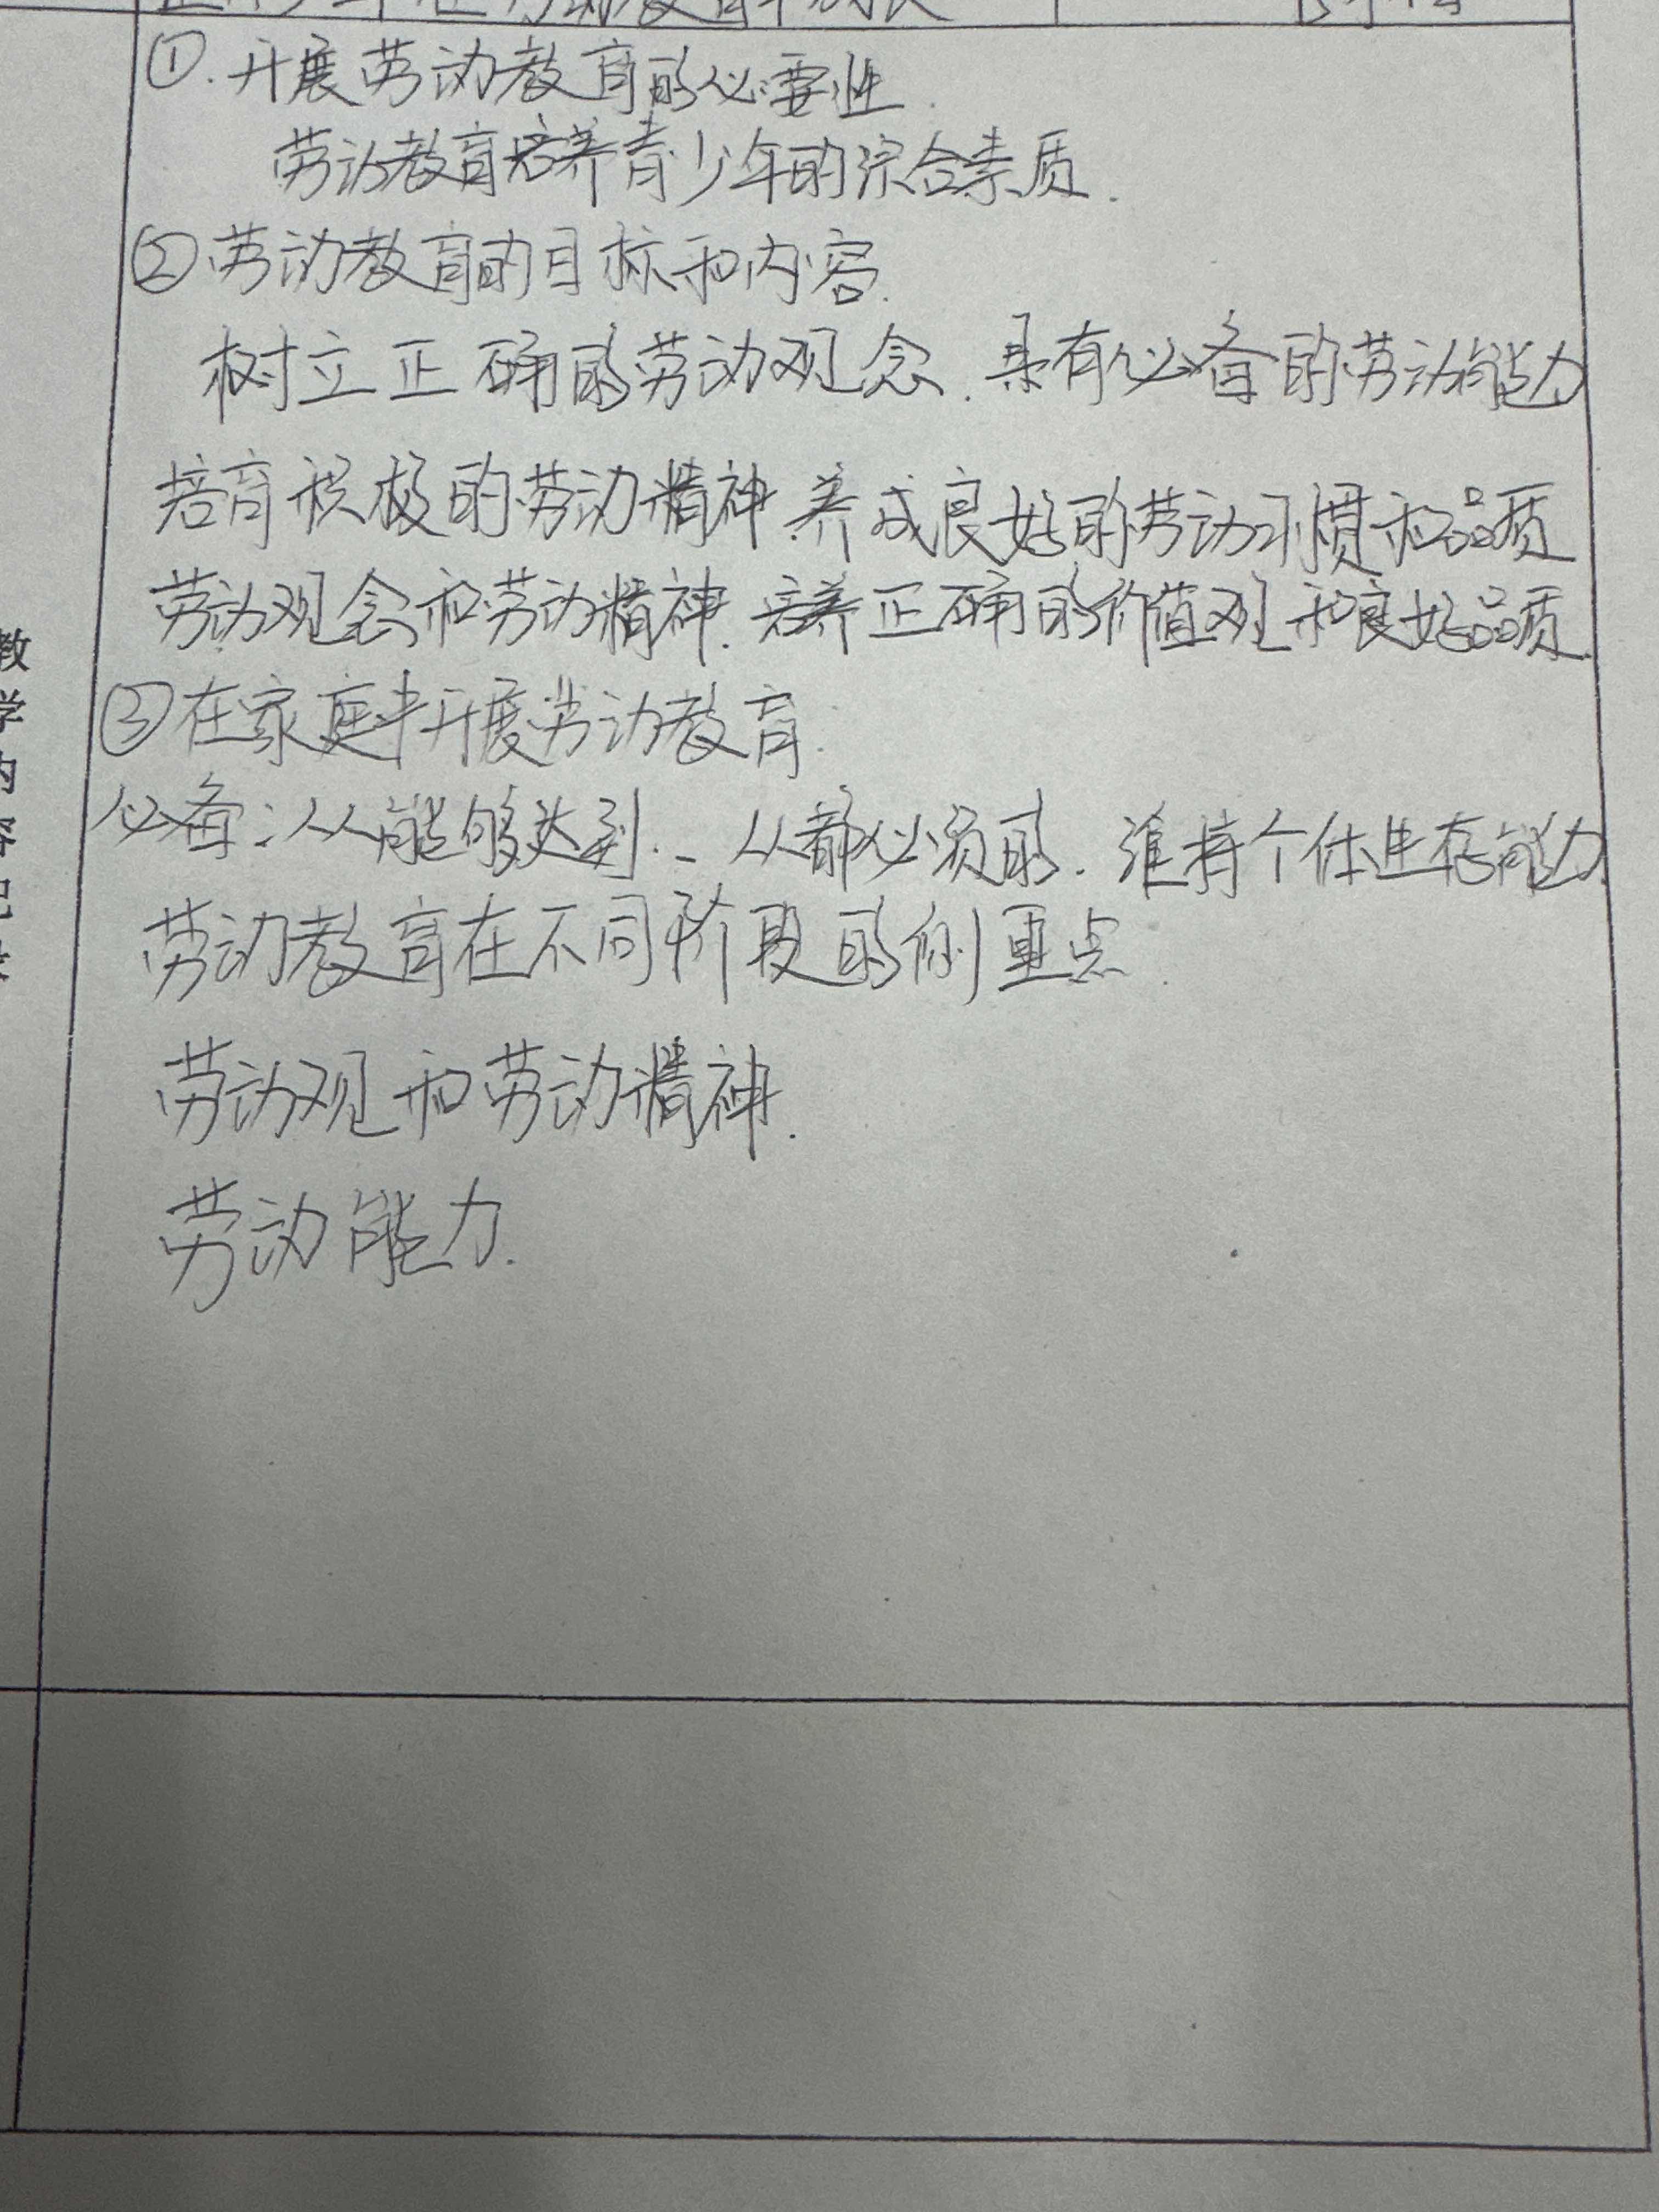 ①.开展劳动教育的必要性.
劳动教育培养青少年的综合素质.
②劳动教育的目标和内容.
树立正确的劳动观念.具有必备的劳动能力
培育积极的劳动精神.养成良好的劳动习惯和品质
劳动观念和劳动精神.培养正确的价值观和良好品质.
③在家庭中开展劳动教育.
必备:人人能够达到..人人都必须的.维持个体生存能力.
劳动教育在不同阶段的侧重点.
劳动观和劳动精神.
劳动能力.
教学内容记录